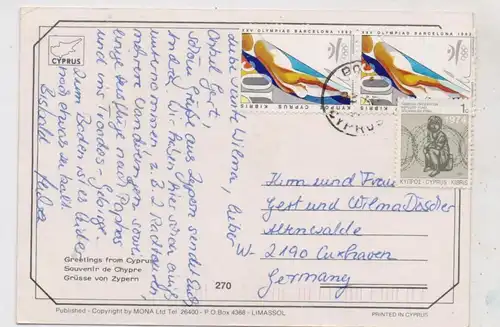 CYPRUS
Liebe Tante Wilma, lieber
Onkel Gert,
schöne Grüße aus Zypern sendet Euch
Wir haben hier schon einiges
unternommen z.B. 2 Radtouren,
mehrere Wanderungen sowie
einige Ausflüge nach Paphos
und ins Troodos-Gebirge.
Zum Baden ist es leider
noch etwas zu kalt.
Bis bald
Greetings from Cyprus
Souvenir de Chypre
Grüsse von Zypern
270
XXV OLYMPIAD BARCELONA 1992
10
KIBRIS CYPRUS
XXV OLYMPIAD BARCELONA 1992
10
KIBRIS CYPRUS
CYPRUS
1c
1974
ΚΥΠΡΟΣ-CYPRUS KIBRIS
Herrn und Frau
Gert und Wilma Döscher
Altenwalde
W- 2190 Cuxhaven
Germany
Published - Copyright by MONA Ltd Tel 26400 - P.O.Box 4368 - LIMASSOL
PRINTED IN CYPRUS